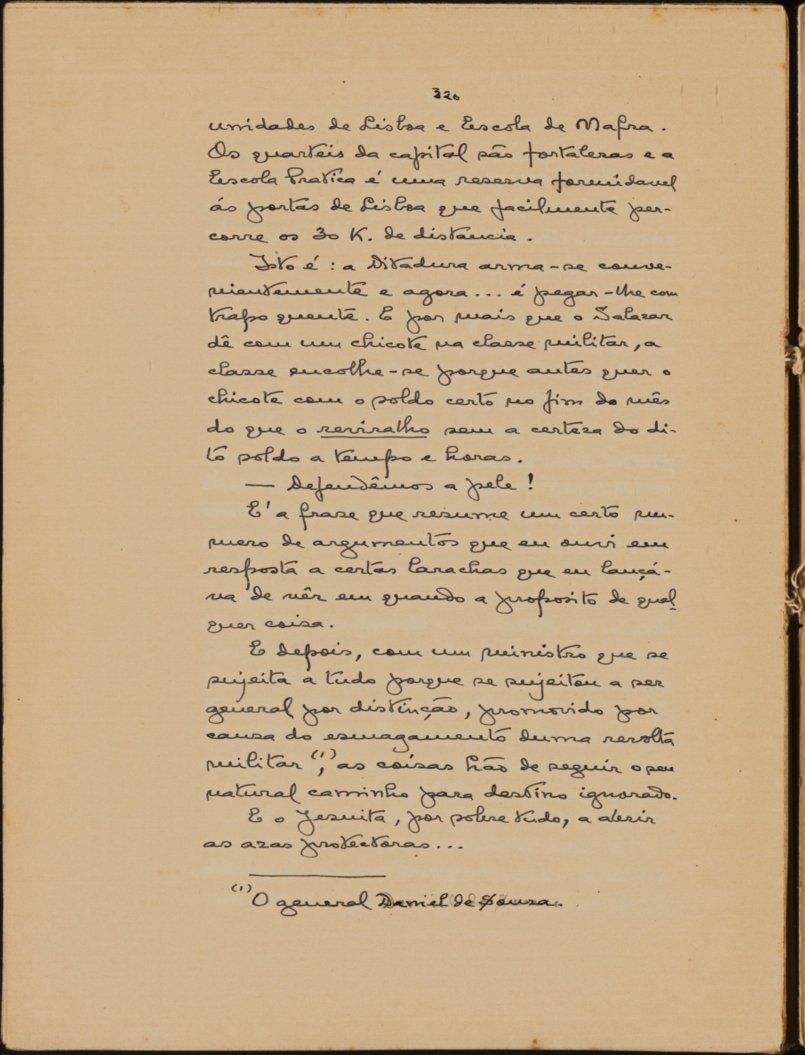 320
unidades de Lisboa e Escola de Mafra.
Os quarteis da capital são fortalezas e a
Escola Pratica é uma reserva formidavel
ás portas de Lisboa que facilmente per-
corre os 30 K. de distancia.
Isto é: a Ditadura arma-se conve-
nientemente e agora... é pegar-lhe com
trapo quente. E por mais que o Salazar
dê com um chicote na classe militar, a
classe encolhe-se porque antes quer o
chicote com o soldo certo no fim do mês
do que o reviralho sem a certeza do di-
to soldo a tempo e horas.
— Defendêmos a pele!
E' a frase que resume um certo nu-
mero de argumentos que eu ouvi em
resposta a certas larachas que eu lançá-
va de vêz em quando a proposito de qual-
quer coisa.
E depois, com um ministro que se
sujeita a tudo porque se sujeitou a ser
general por distinção, promovido por
causa do esmagamento duma revolta
militar (1), as coisas hão de seguir o seu
natural caminho para destino ignorado.
E o Jesuita, por sobre tudo, a abrir
as azas protectoras...
(1) O general Daniel de Sousa.